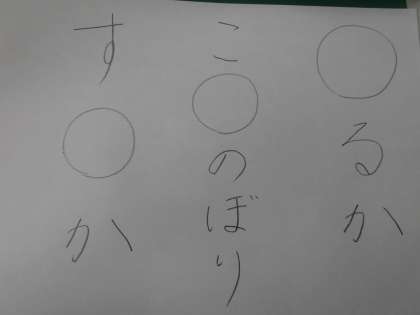 ○るか
こ○のぼり
す○か